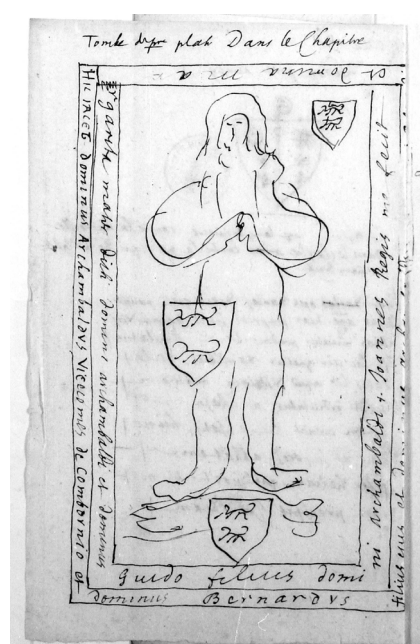 Tombe de plate Dans le Chapitre
et domina Ma
Hic jacet dominus Archambaldus Vicecomes de Combornio et
dominus Bernardus
filius eius et dominus
mater dicti domini archambaldi et dominus
Guido filius domi
ni archambaldi + Joannes Regis me fecit